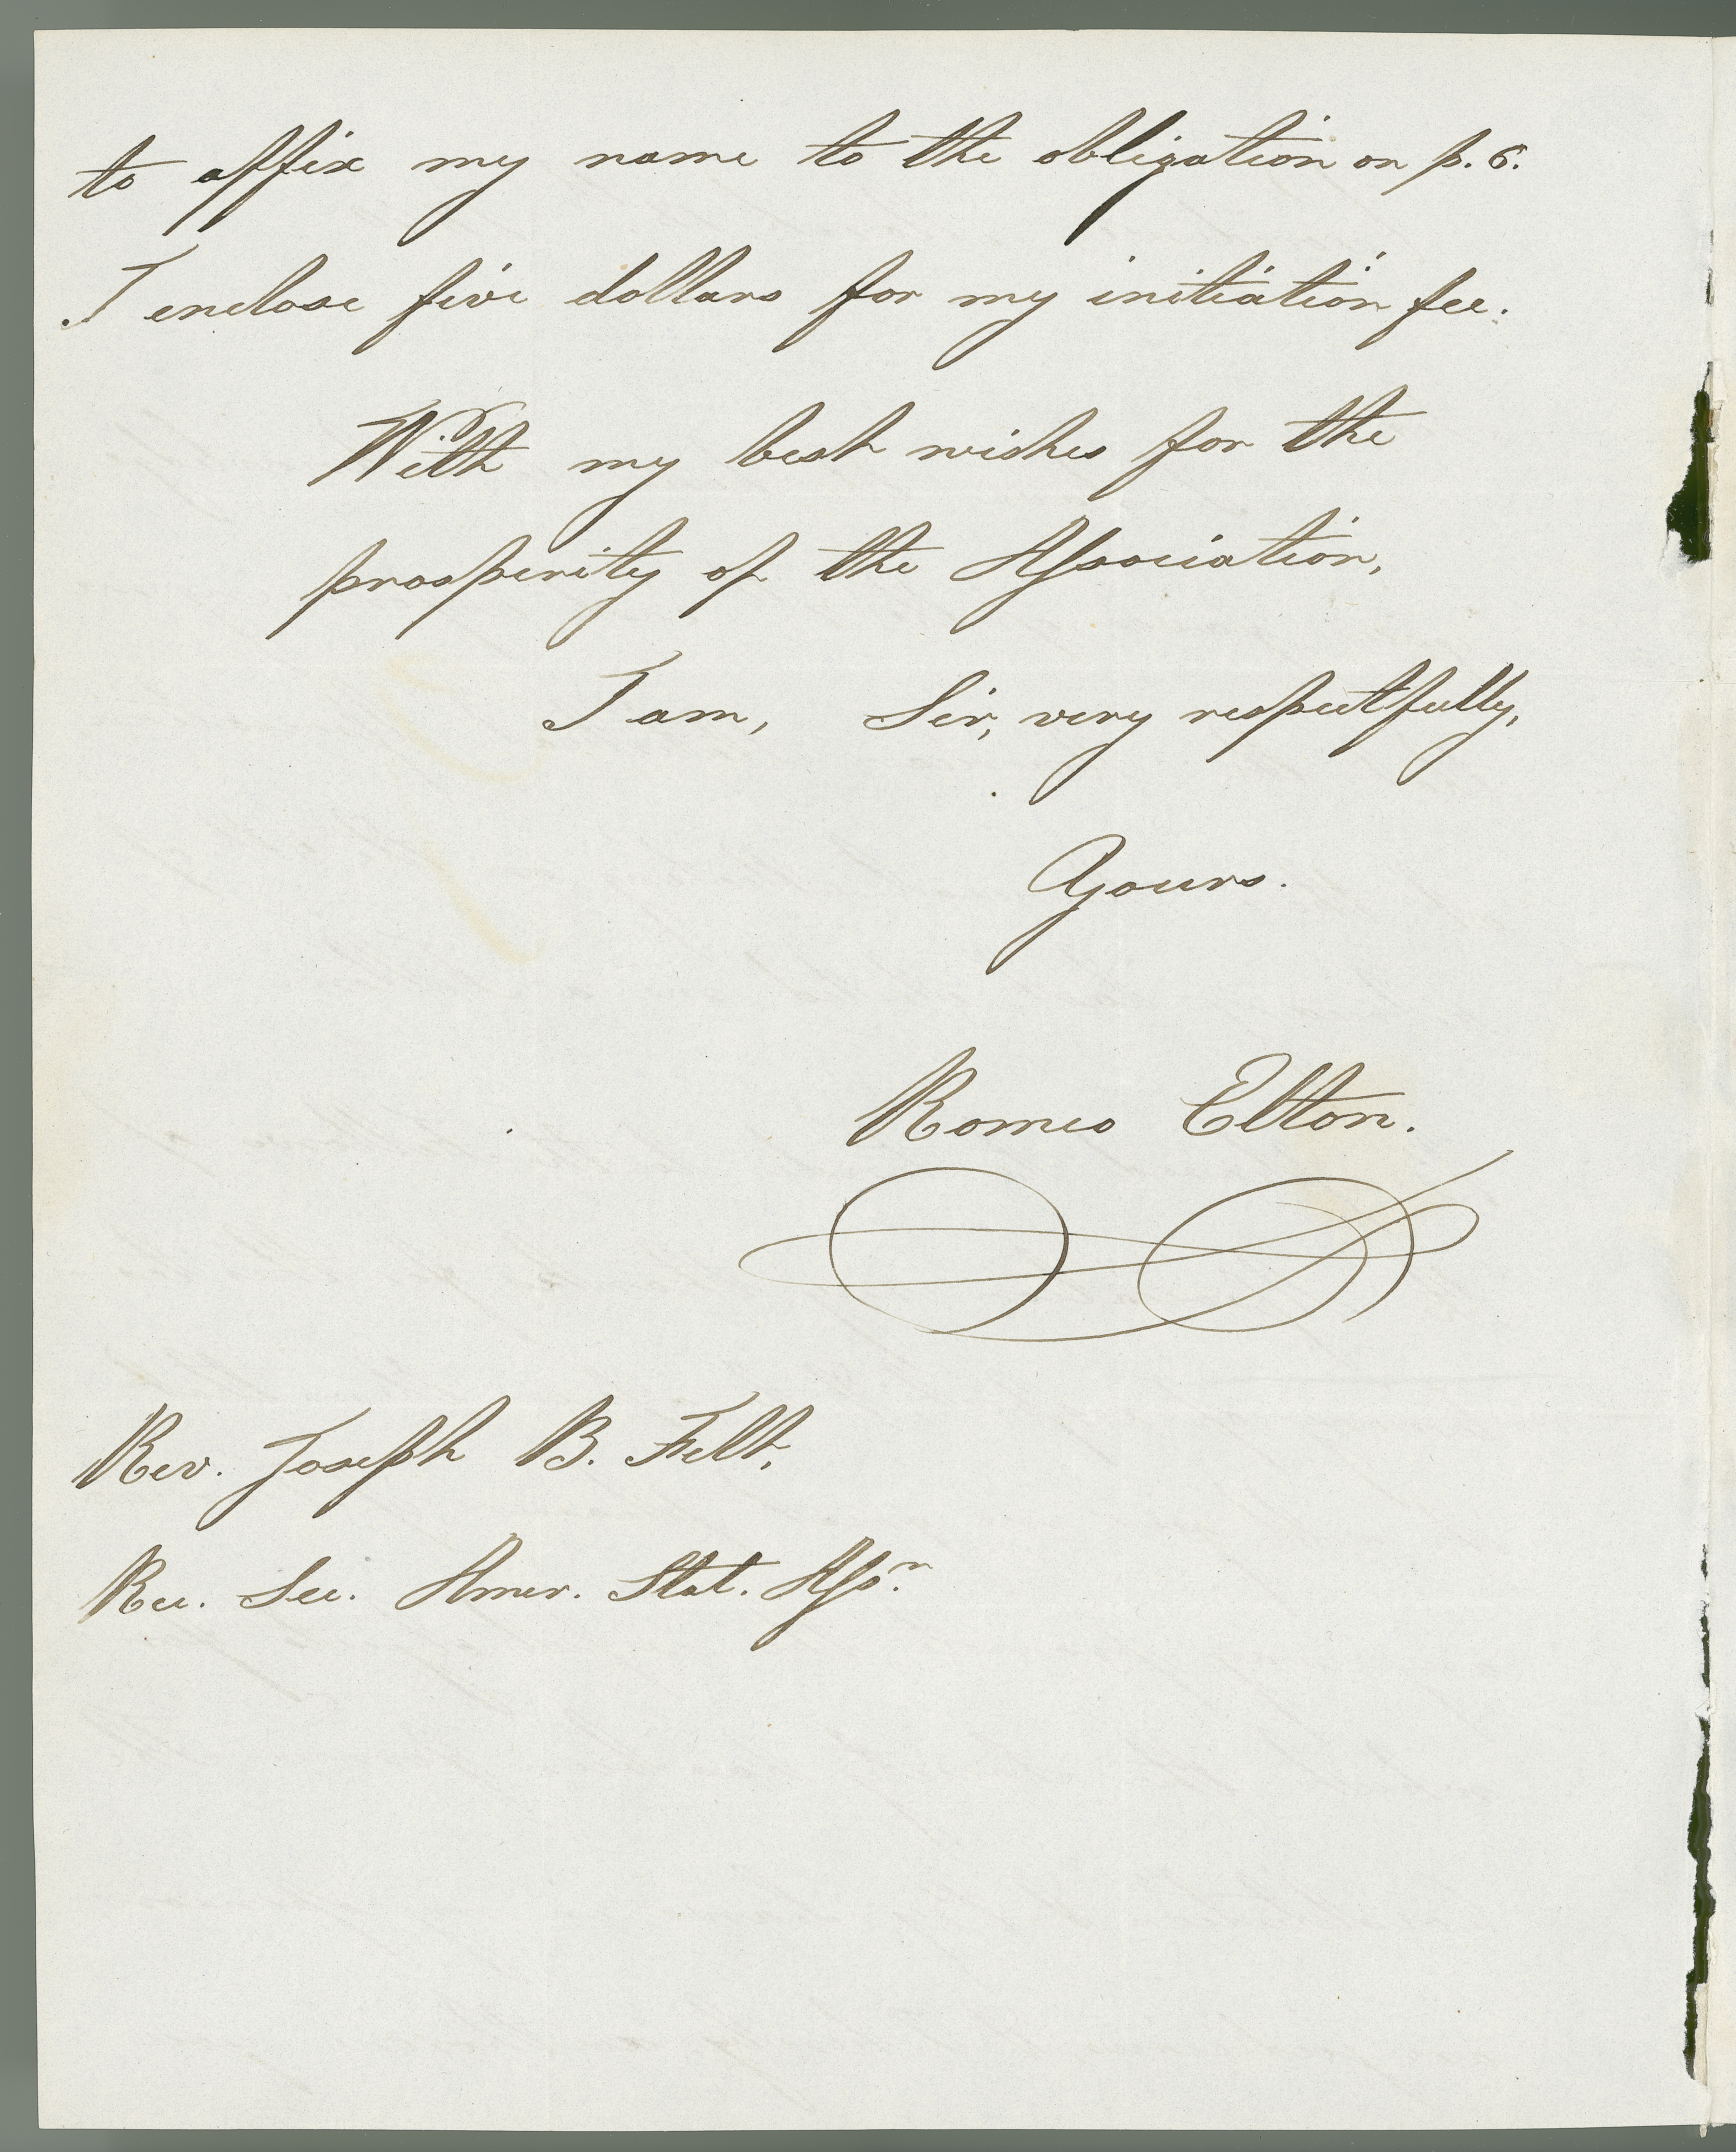 to affix my name to the obligation on p. 6.
I enclose five dollars for my initiation fee.
With my best wishes for the
prosperity of the Association,
I am, Sir, very respectfully,
Yours.
Romeo Elton.
Rev. Joseph B. Felt,
Rec. Sec. Amer. Stat. Assn.